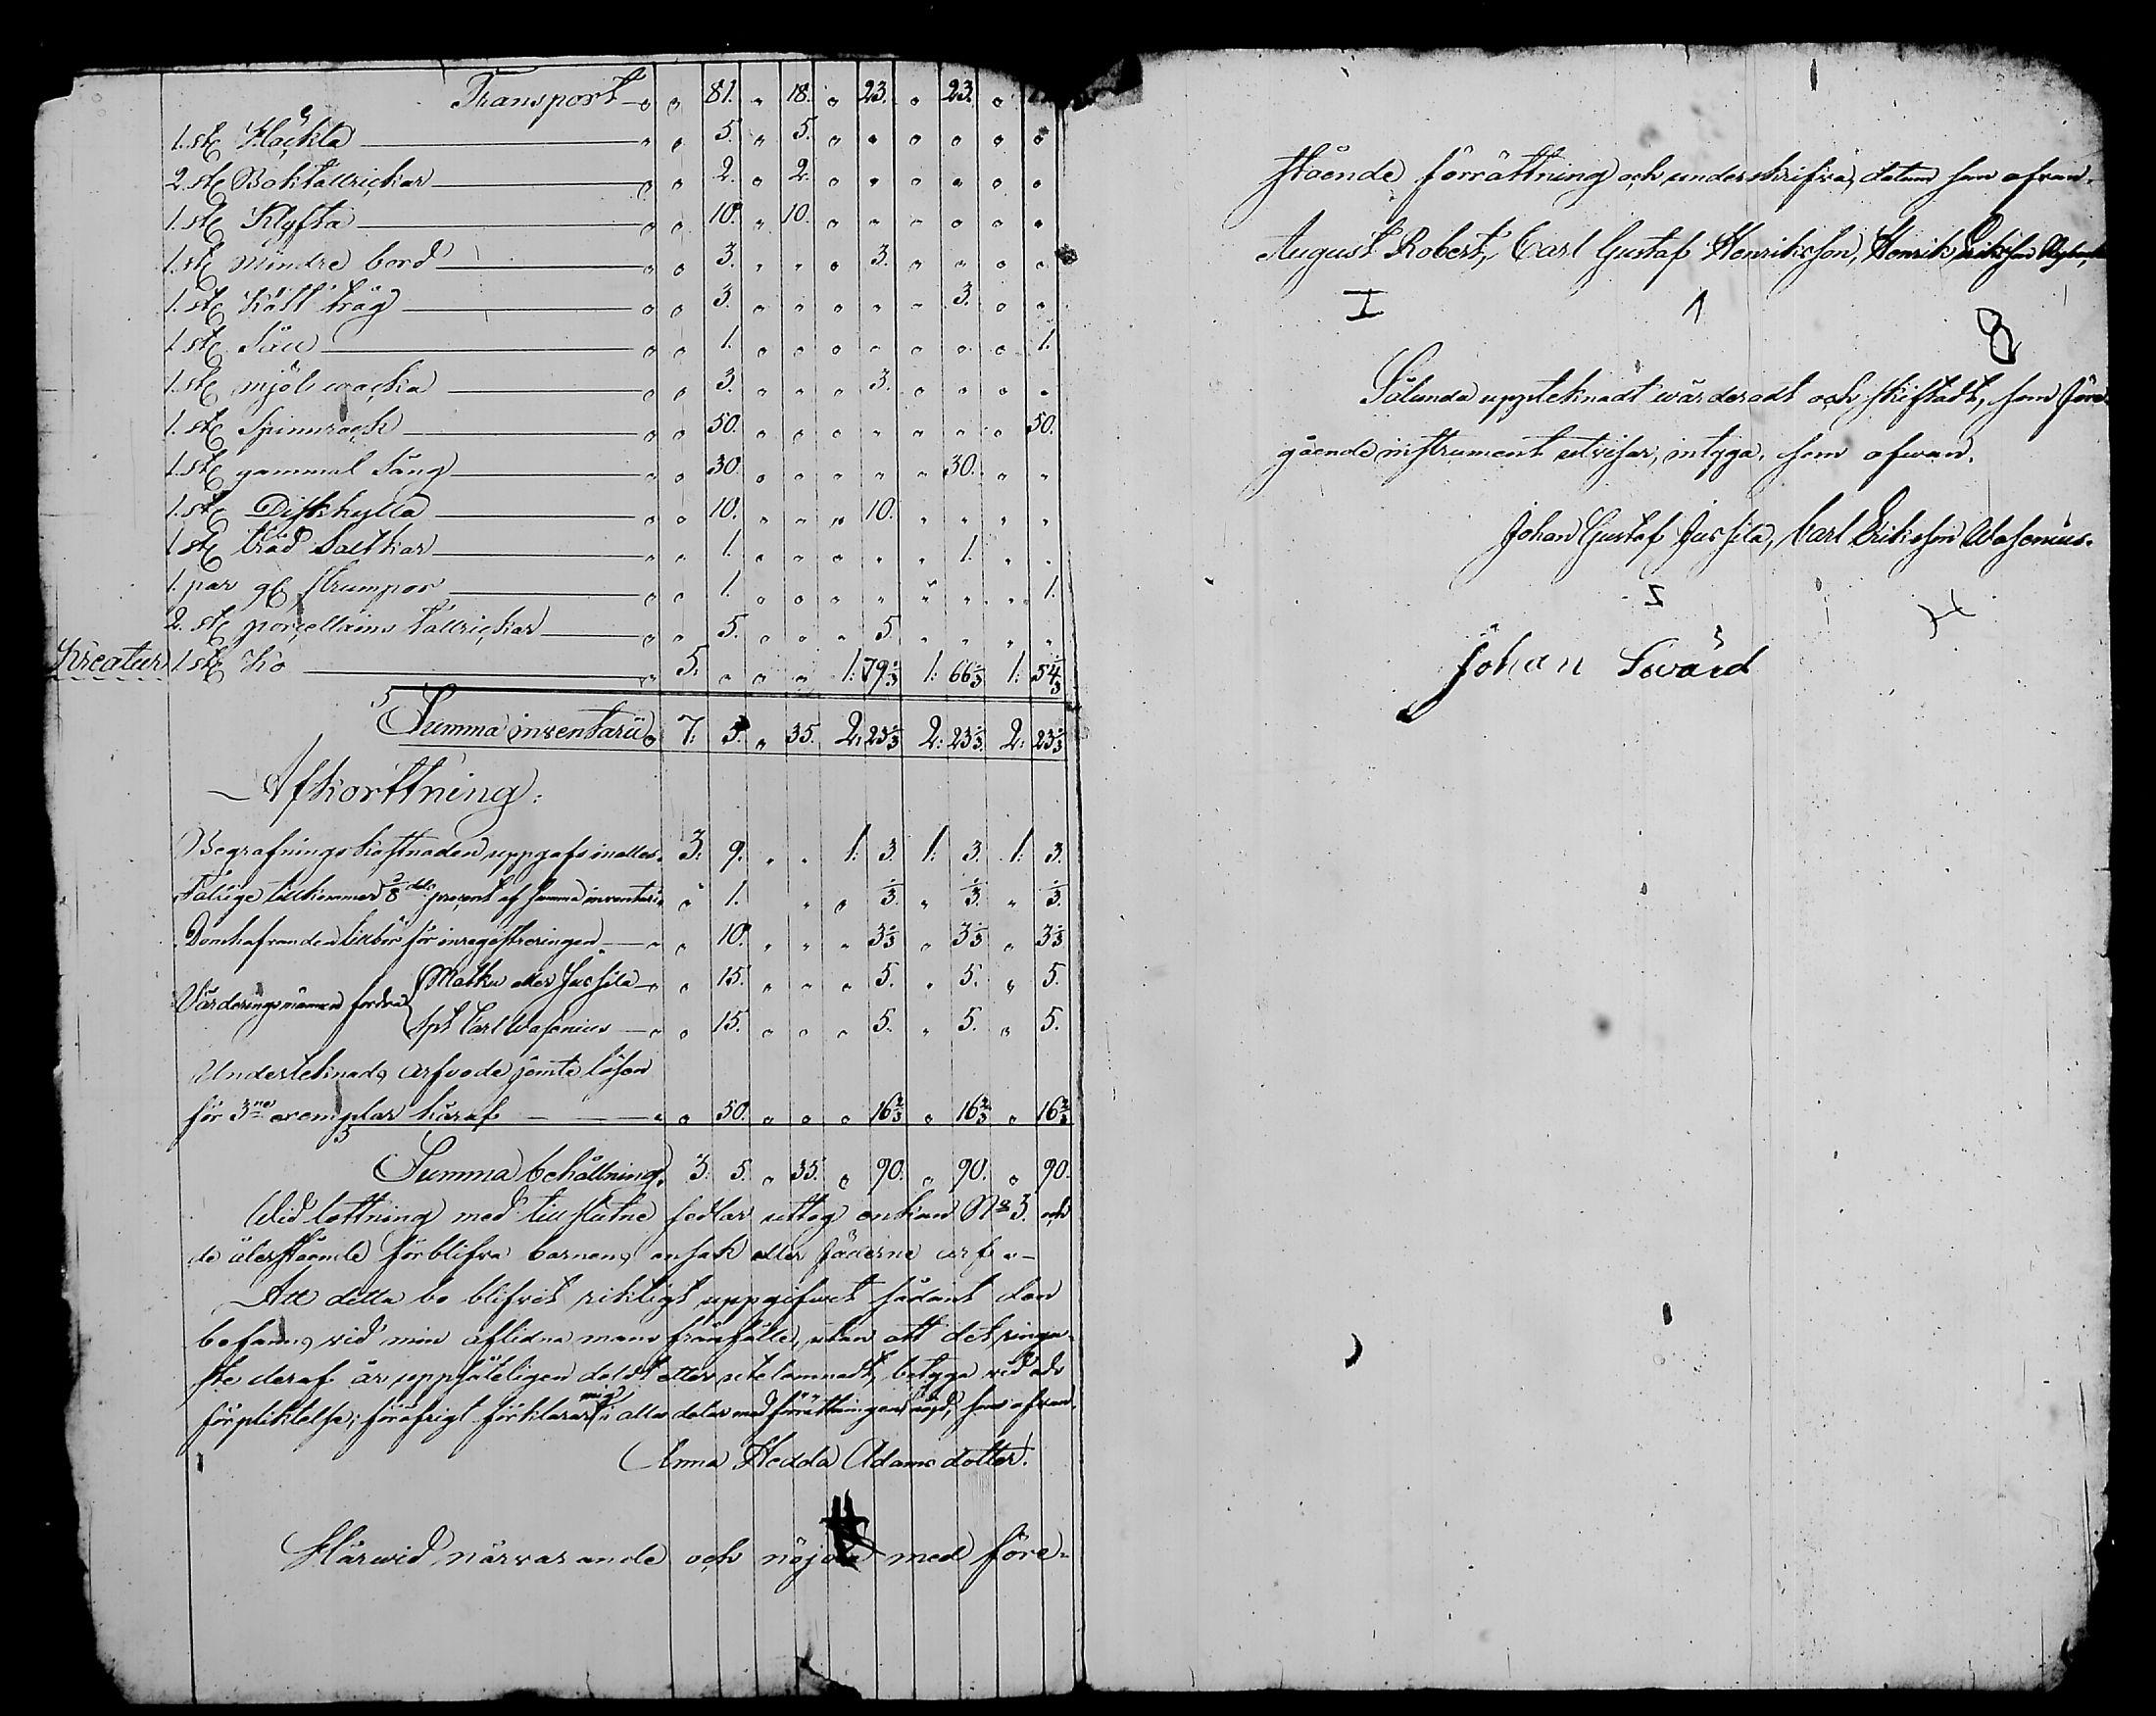 Transport „ „ 81. „ 18. „ 23. „ 23. „
1. st Häckla „ „ 5. „ 5. „ „ „ „ „ „
2. st Boktallrickar „ „ 2. „ 2. „ „ „ „ „ „
1. st Klyfta „ „ 10. „ 10. „ „ „ „ „ „
1. st mindre bord „ „ 3. „ „ „ 3. „ „ „ „
1. st Kått tråg „ „ 3. „ „ „ „ „ 3. „ „
1. st Såll „ „ 1. „ „ „ „ „ „ „ 1.
1. st mjöl wacka „ „ 3. „ „ „ 3. „ „ „ „
1. st Spinnrock „ „ 50. „ „ „ „ „ „ „ 50.
1. st gammal Säng „ „ 30. „ „ „ „ „ 30. „ „
1. st Diskhylla „ „ 10. „ „ „ 10. „ „ „ „
1 st träd Saltkar „ „ 1. „ „ „ „ „ 1. „ „
1. par gl strumpor „ „ 1. „ „ „ „ „ „ „ 1.
2. st porcellains tallrickar „ „ 5. „ „ „ 5. „ „ „ „
Kreatur 1 st Ko „ 5. „ „ „ 1: 79 1/3 1: 66 1/3 1: 54 1/3
Summa inventarii „ 7: 5. „ 35. 2: 23 1/3 2: 23 1/3 2: 23 1/3
Afkorttning:
Begrafnings kostnaden uppgafs inalles. 3: 9. „ „ 1: 3. 1: 3. 1: 3.
Fattige tillkommer 1/8 dels procent af summa inventarii „ 1. „ „ 1/3. „ 1/3. „ 1/3.
Domhafvanden tillbör för inregistreringen „ „ 10. „ „ „ 3 1/3 „ 3 1/3 „ 3 1/3
Värderingsmännen fordra { Matku eller Jussila „ „ 15. „ „ „ 5. „ 5. „ 5.
Carl Wasenius „ „ 15. „ „ „ 5. „ 5. „ 5.
Undertecknads arfvode jemte lösen
för 3ne exemplar häraf „ „ 50. „ „ „ 16 2/3 „ 16 2/3 „ 16 2/3
Summa behållning. 3: 5. „ 35. „ 90. „ 90. „ 90.
Wid lottning med tillslutne sedlar uttog enkan No 3. och
de återstående förblifva barnens ensak eller fäderne arf.
Att detta bo blifvit riktigt uppgifwet sådant den
befanns vid min aflidna mans frånfälle, utan att det ringa-
ste deraf är uppsåteligen doldt eller utelämnadt, betyga vid eds
förpliktelse; föröfrigt förklarar mig i allas delar med förrättningen nöjd, som ofwan.
Anna Hedda Adams dotter.
Härwid närvarande och nöjda med före-
stående förrättning och underskrifva, datum som ofvan.
August Robert, Carl Gustaf Henriksson, Henrik Eriksson
I 1 8
Sålunda uppteknadt wärderadt och skiftadt, som före-
gående instrument utvisar, intyga, som ofwan.
Johan Gustaf Jussila, Carl Eriksson Wasenius.
Johan Swärd